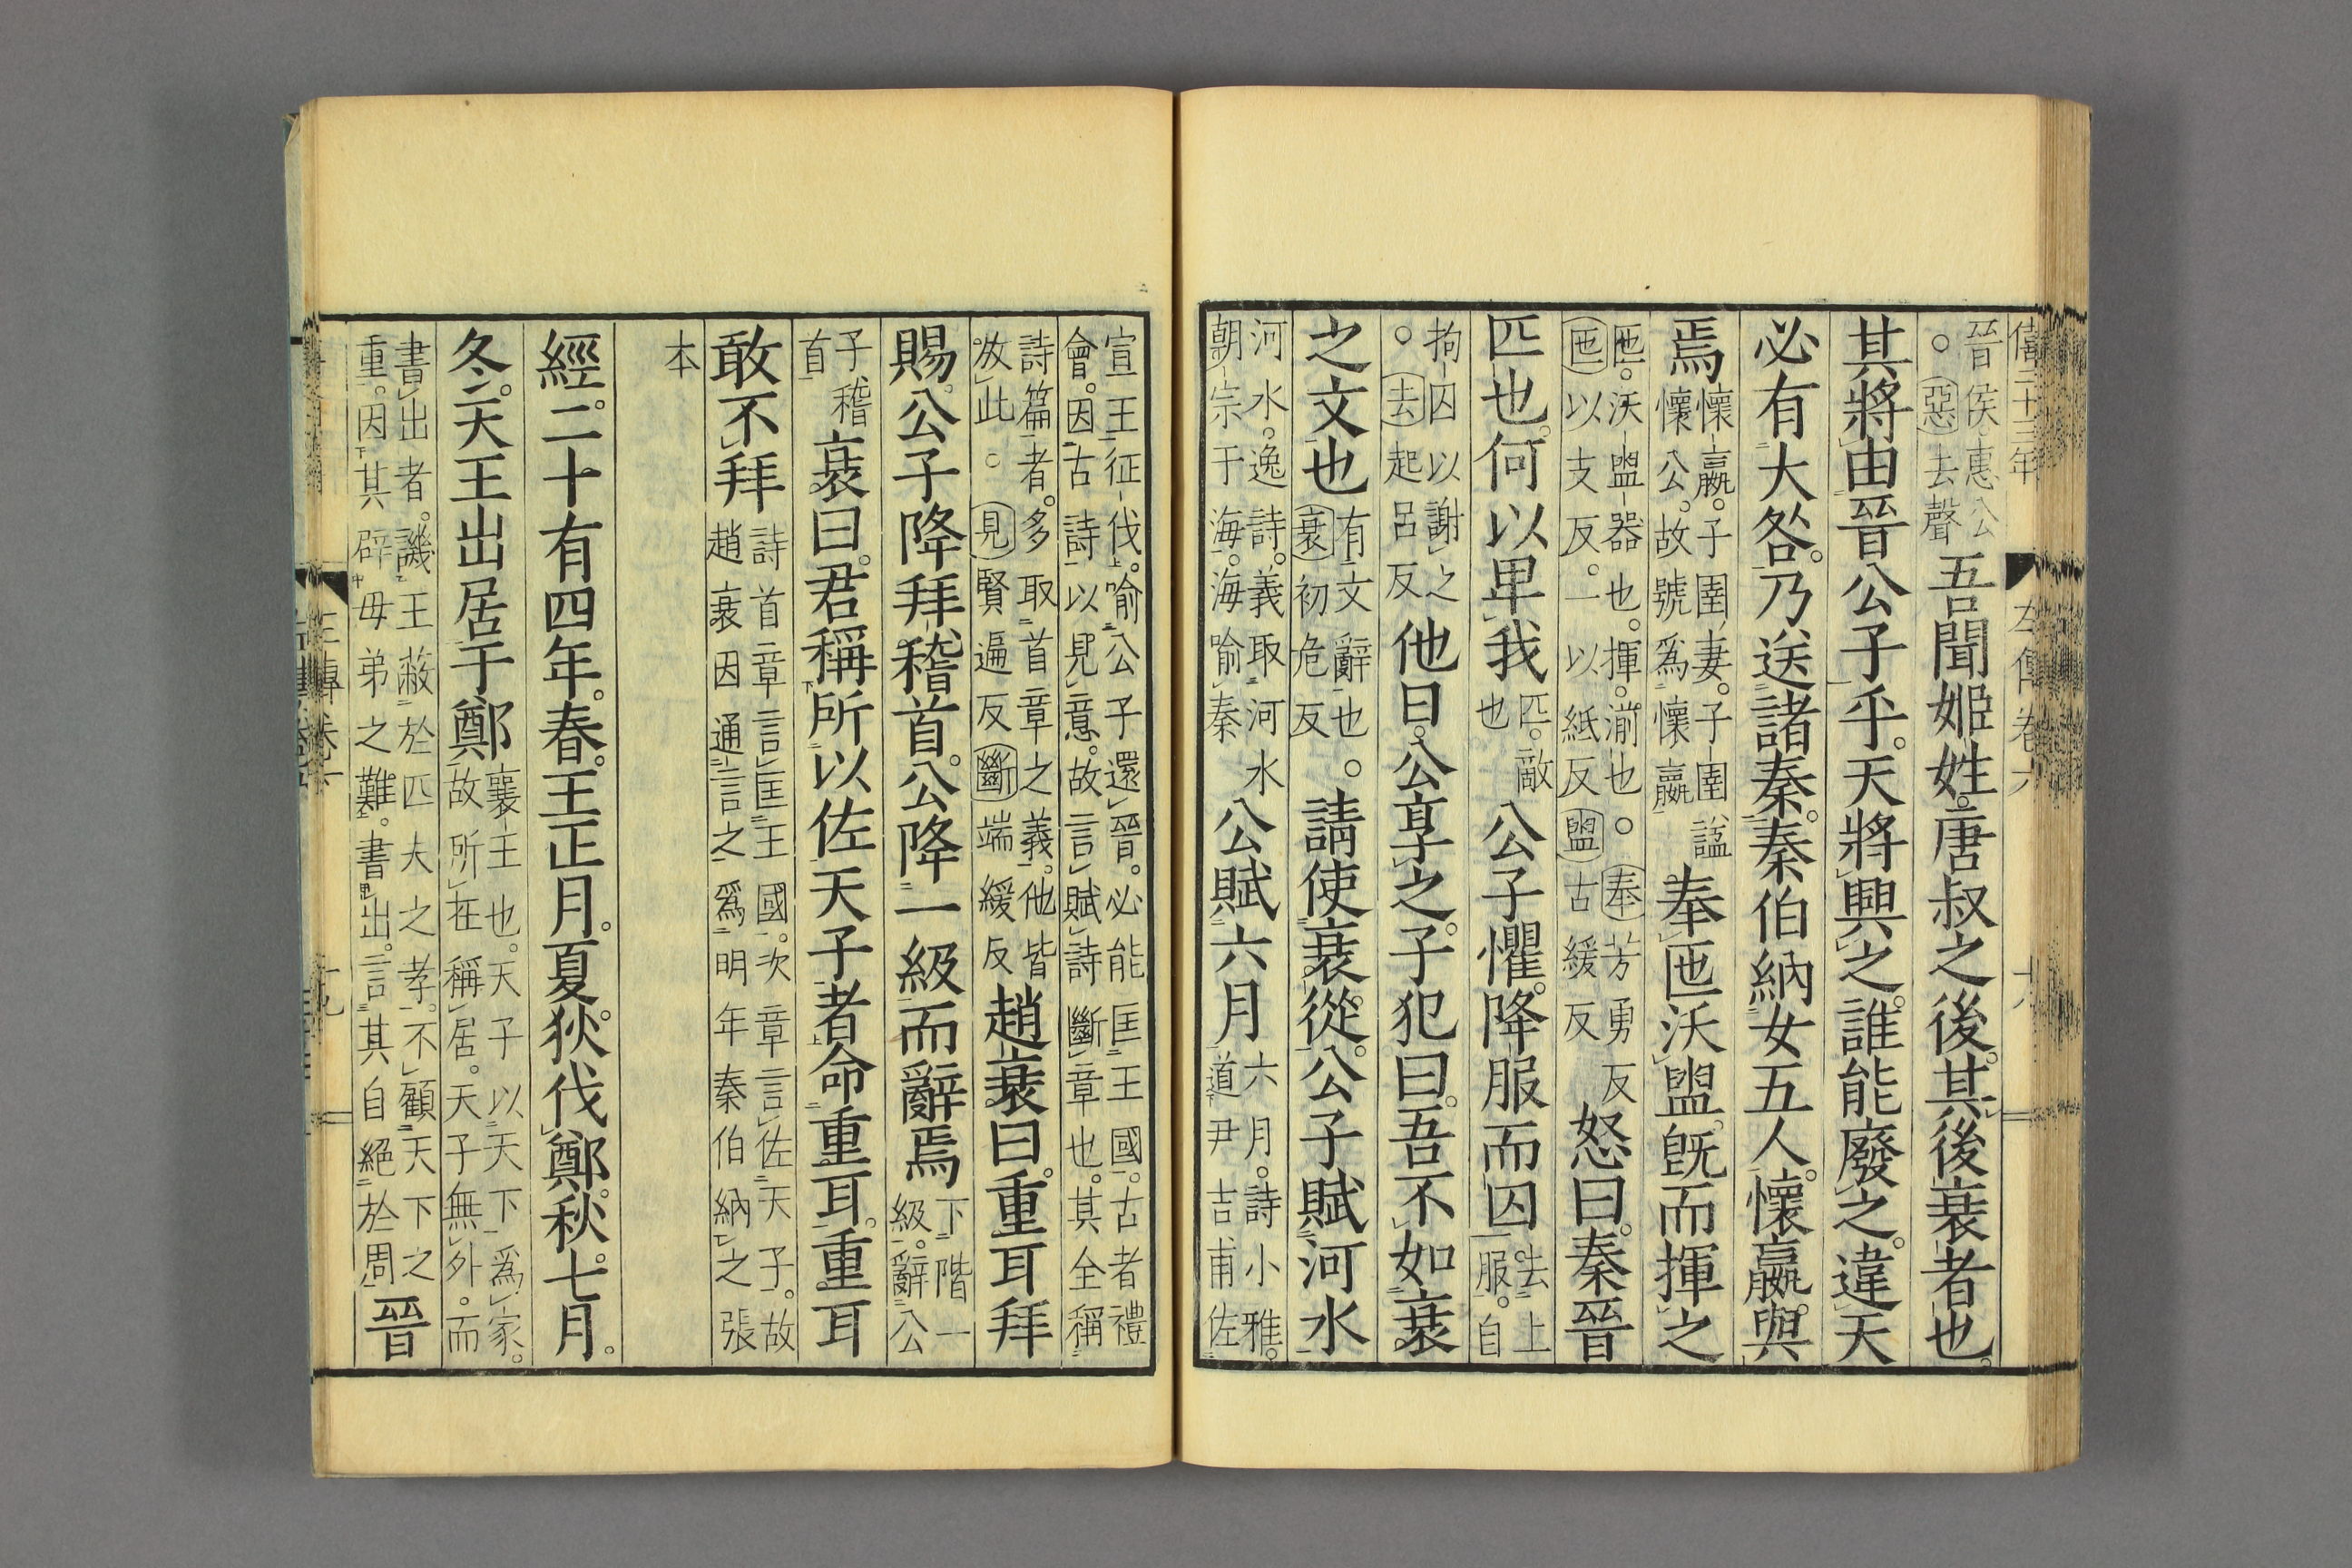 僖二十三年 左傳卷六 十八
晉侯惠公
○惡去聲
吾聞姬姓唐叔之後其後衰者也
其將由晉公子乎天將興之誰能廢之違天
必有大咎乃送諸秦秦伯納女五人懷嬴與
焉
懷嬴子圉妻子圉謚
懷公故號爲懷嬴
奉匜沃盥旣而揮之
匜沃盥器也揮湔也○奉芳勇反
匜以支反一以紙反盥古緩反
怒曰秦晉
匹也何以卑我
匹敵
也
公子懼降服而囚
去上
服自
拘囚以謝之
○去起呂反
他日公享之子犯曰吾不如衰
之文也
有文辭也○
衰初危反
請使衰從公子賦河水
河水逸詩義取河水
朝宗于海海喻秦
公賦六月
六月詩小雅
道尹吉甫佐
宣王征伐喻公子還晉必能匡王國古者禮
會因古詩以見意故言賦詩斷章也其全稱
詩篇者多取首章之義他皆
放此○見賢遍反斷端緩反
趙衰曰重耳拜
賜公子降拜稽首公降一級而辭焉
下階一
級辭公
子稽
首
衰曰君稱所以佐天子者命重耳重耳
敢不拜
詩首章言匡王國次章言佐天子故
趙衰因通言之爲明年秦伯納之張
本
經二十有四年春王正月夏狄伐鄭秋七月
冬天王出居于鄭
襄王也天子以天下爲家
故所在稱居天子無外而
書出者譏王蔽於匹夫之孝不顧天下之
重因其辟母弟之難書出言其自絕於周
晉